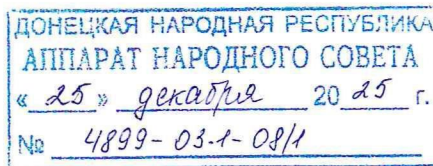 ДОНЕЦКАЯ НАРОДНАЯ РЕСПУБЛИКА
АППАРАТ НАРОДНОГО СОВЕТА
« 25 » декабря 20 25 г.
№ 4899-03.1-08/1